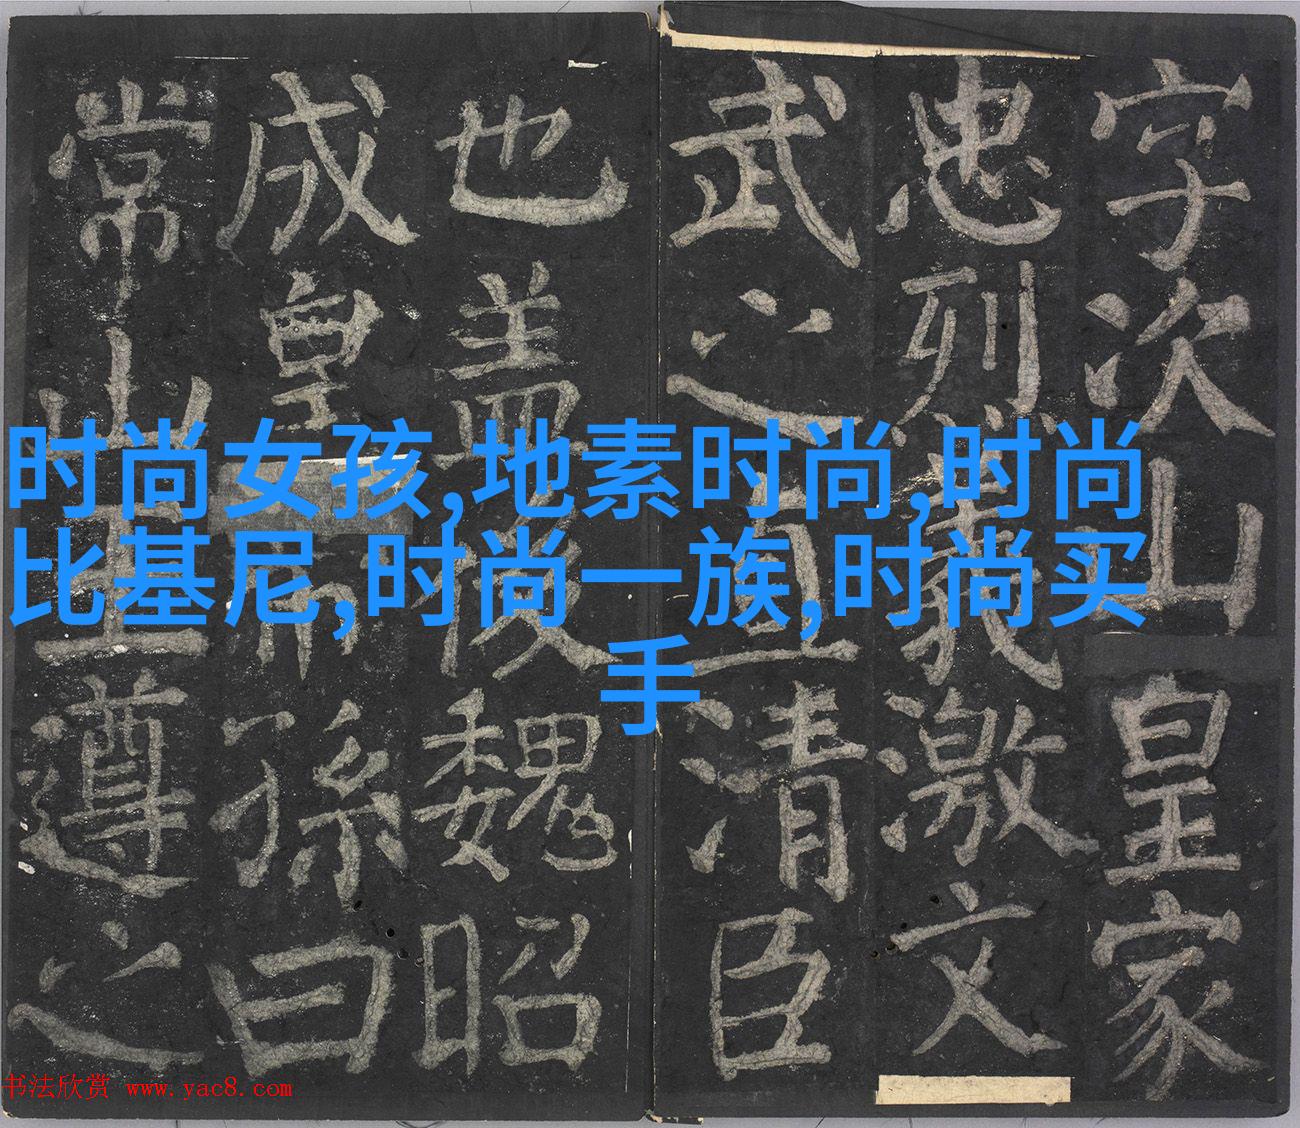 字次山皇家
忠烈義激文
武之直清臣
也盖後魏昭
成皇帝孫曰
常山王遵之
时尚女孩,地素时尚,时尚
比基尼,时尚一族,时尚买
手
书法欣赏 www.yac8.com